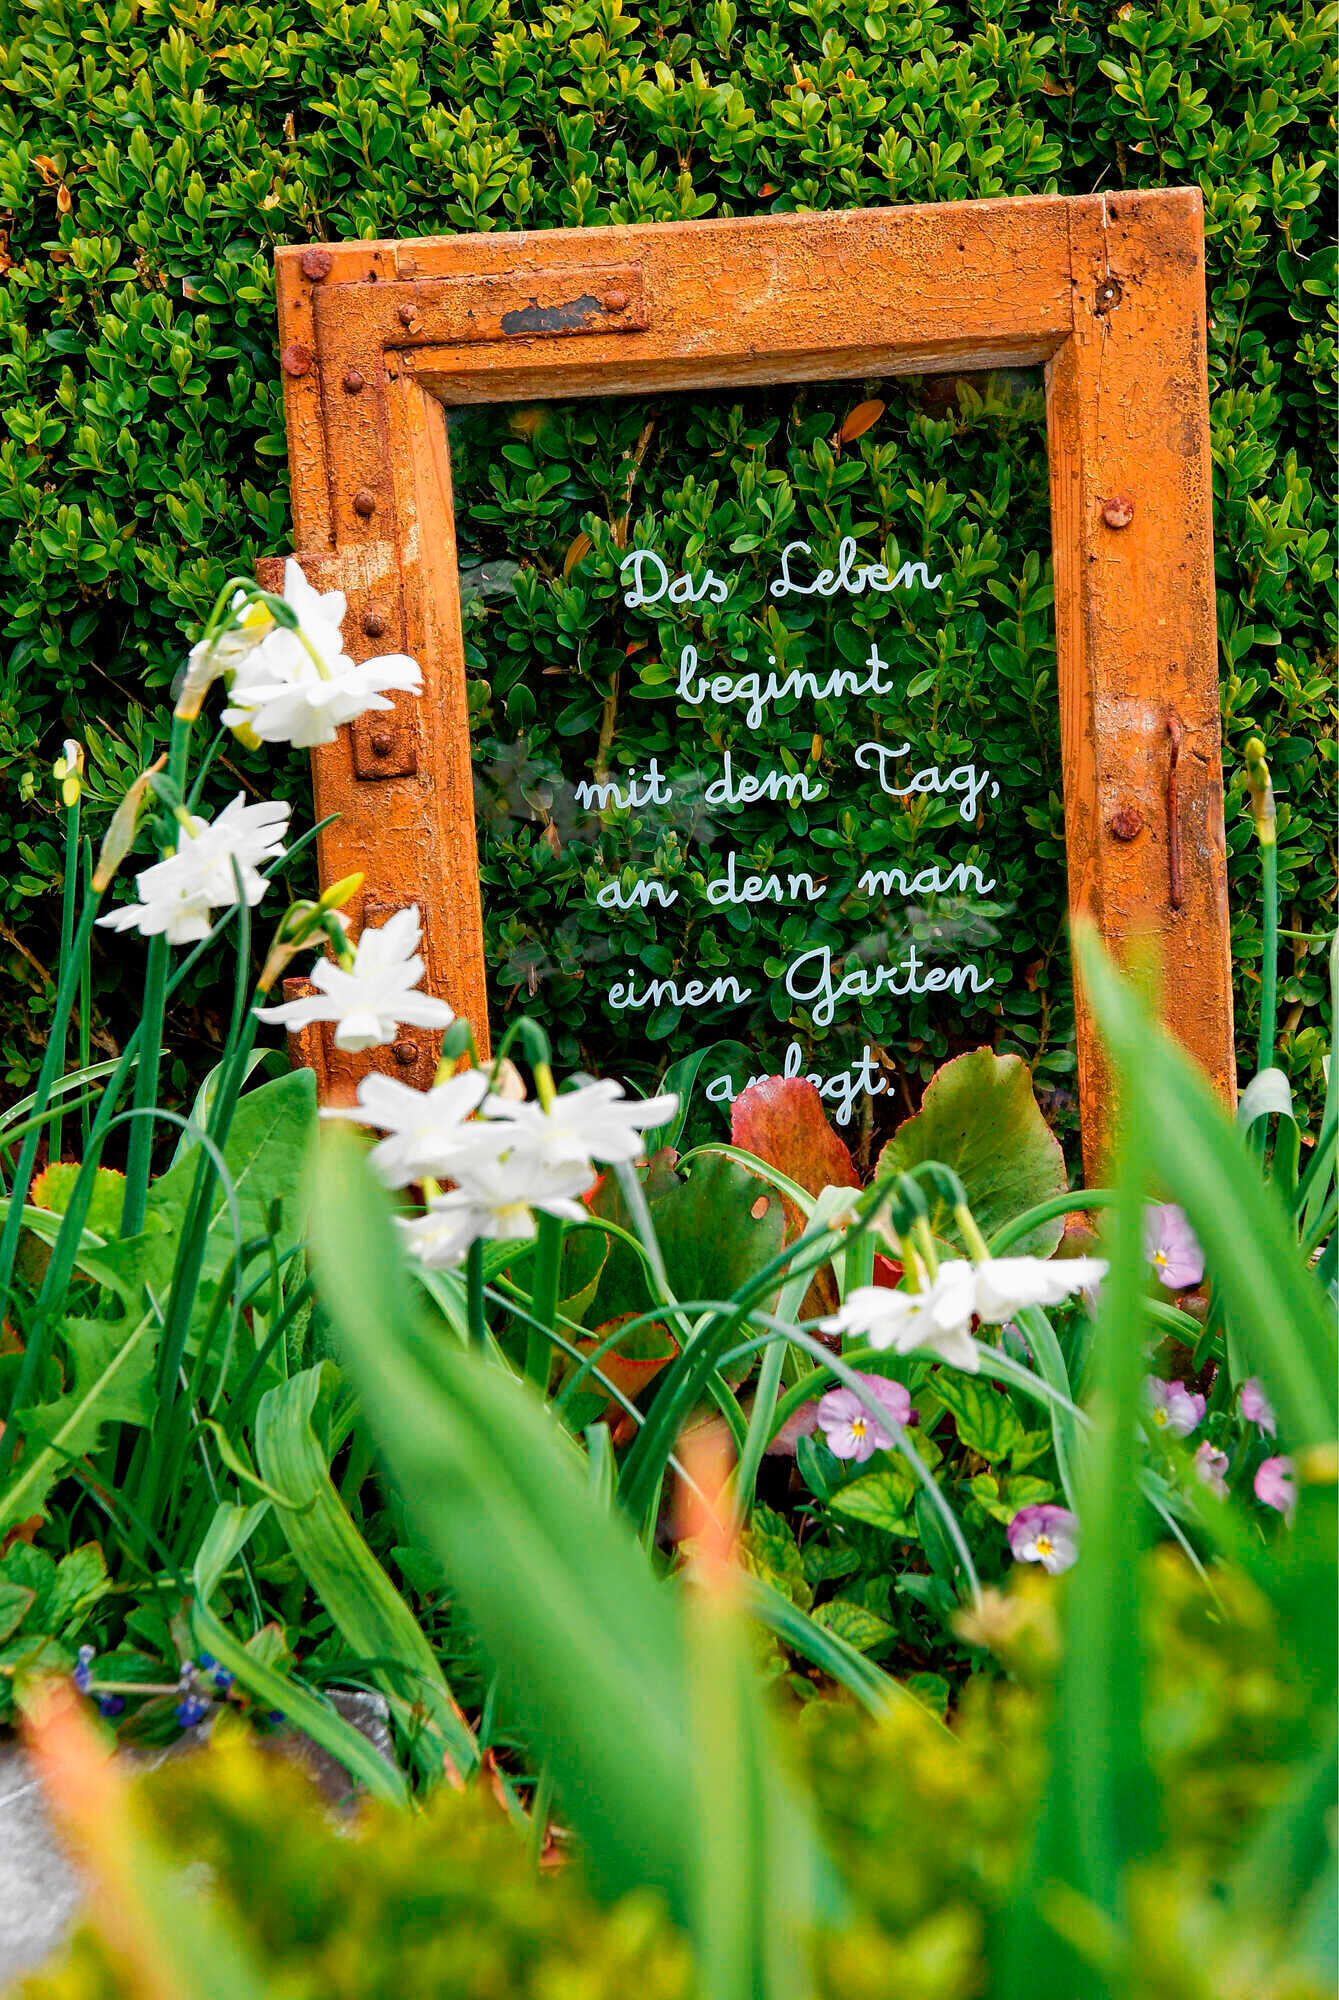 Das Leben
beginnt
mit dem Tag,
an dem man
einen Garten
anlegt.